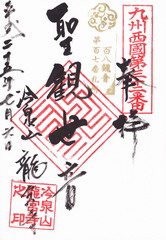 九州西國第三十二番
奉拝
百八観音
第百七番札
聖觀世音
冷泉山 龍
平成二五年七月六日
冷泉山
龍宮寺
之印